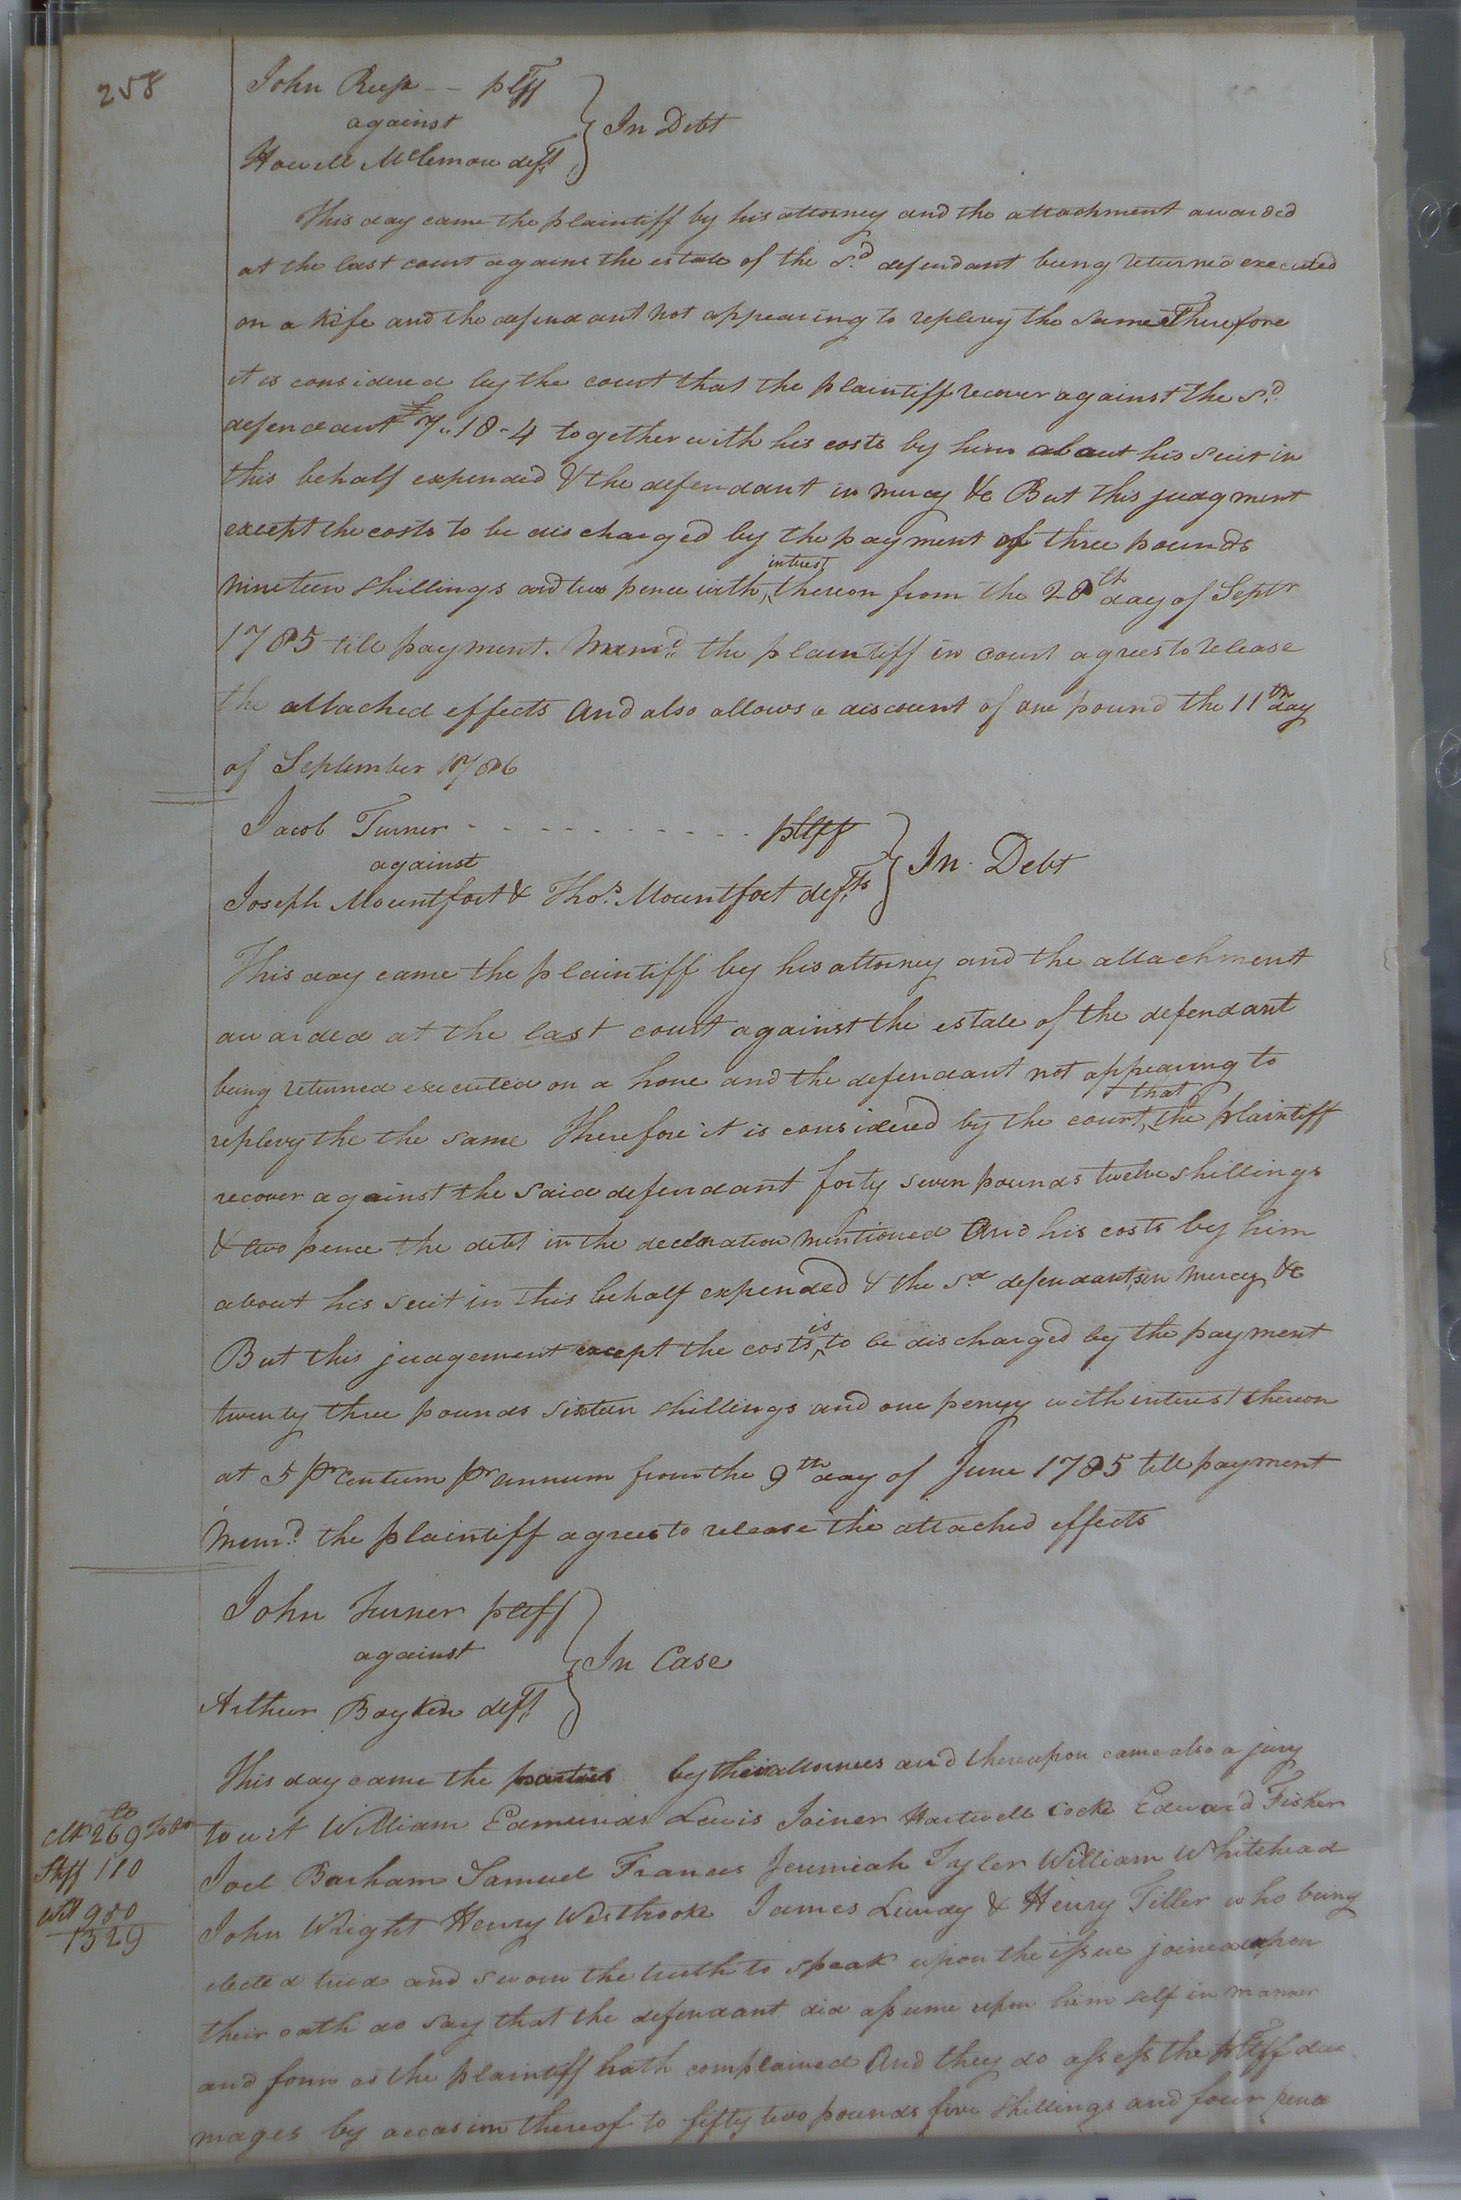 258
John Reese -- pltff
against
Howell McLemore deft
} In Debt
This day came the plaintiff by his attorney and the attachment awarded
at the last court agains the estate of the sd. defendant being returned executed
on a Kife and the defendant not appearing to replevy the same Therefore
it is considered by the court that the plaintiff recover against the sd.
defendant £7..18-4 together with his costs by him about his suit in
this behalf expended & the defendant in mercy &c But this judgment
except the costs to be discharged by the payment of three pounds
nineteen shillings and two pence with interest thereon from the 28th day of Septr
1785 till payment. Memd. the plaintiff in court agrees to release
the attached effects And also allows a discount of one pound the 11th day
of September 1786
Jacob Turner - - - - - - - - - - pltff
against
Joseph Mountfort & Thos. Mountfort defts
} In Debt
This day came the plaintiff by his attorney and the attachment
awarded at the last court against the estate of the defendant
being returned executed on a horse and the defendant not appearing to
replevy the the same Therefore it is considered by the court that the plaintiff
recover against the said defendant forty seven pounds twelve shillings
& two pence the debt in the declaration mentioned And his costs by him
about his suit in this behalf expended & the sd defendants in mercy &c
But this judgement except the costs is to be discharged by the payment
twenty three pounds sixteen shillings and one penny with interest thereon
at 5 pr Centum pr annum from the 9th day of June 1785 till payment
Memd. the plaintiff agrees to release the attached effects
John Turner pltff
against
Arthur Boykin deft
} In Case
This day came the parties by their attornies and thereupon came also a jury
to wit William Edmunds Lewis Joiner Hartwell Cocke Edward Fisher
Joel Barham Samuel Frances Jeremiah Tyler William Whitehead
John Wright Henry Westbrook James Lundy & Henry Tiller who being
elected tried and sworn the truth to speak upon the issue joined upon
their oath do say that the defendant did assume upon him self in manner
and form as the plaintiff hath complained And they do assess the pltff da
mages by occasion thereof to fifty two pounds five shillings and four pence
Clk 269
Shff 110
Witt 950
1329